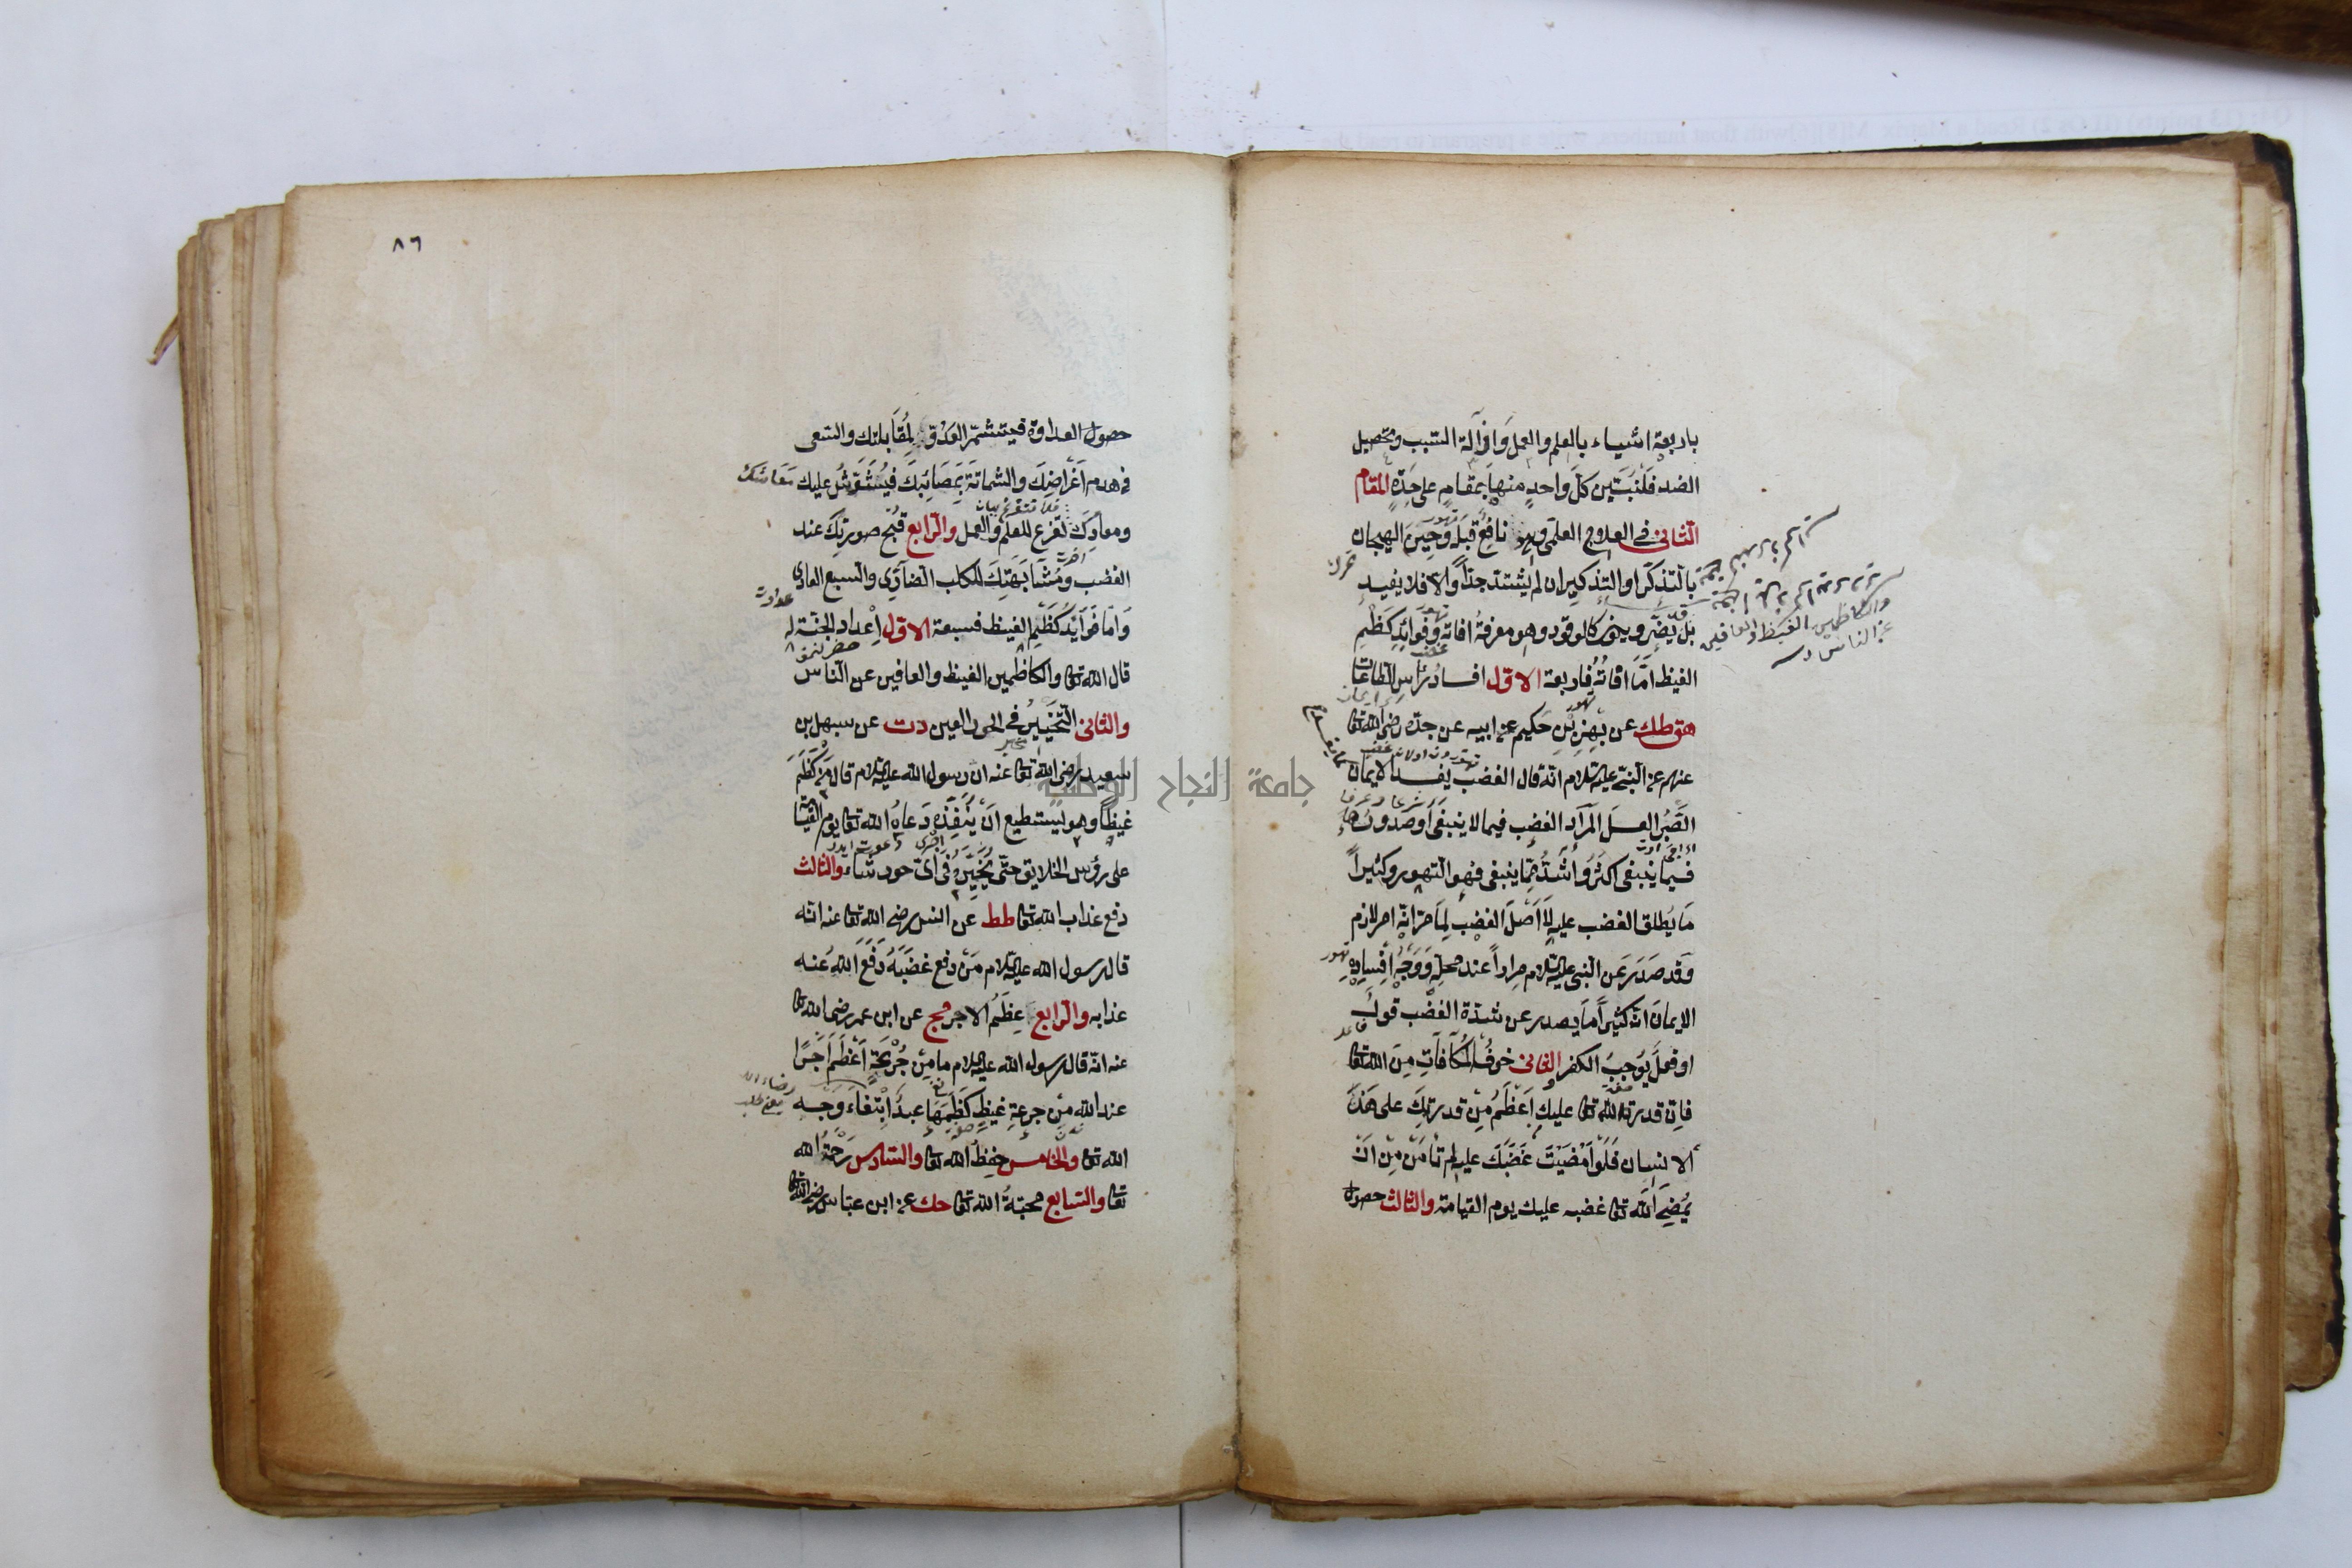 باربعة اشياء بالعلم والعمل وازالة السبب وتحصيل
الضد فلنبين كل واحد منها بمقام على حدة المقام
الثاني في العلاج العلمي وهو نافع قبل وحين الهيجان
بالتذكر او التذكير ان لم يشتد جدا والا فلا يفيد
بل يضر ويكون كالوقود وهو معرفة افاته وفوائد كظم
الغيظ اما افاته فاربعة الاول افساد رأس الطاعات
هق طك عن بهز بن حكيم عن ابيه عن جده رضي الله تعا
عنهم عن النبي عليه السلام انه قال الغضب يفسد الايمان
الصبر العسل المراد الغضب فيما لا ينبغي او صدوره
فيما ينبغي اكثر واشد مما ينبغي فهو التهور وكثيرا
ما يطلق الغضب عليه لا اصل الغضب لما مر انه امر لازم
وقد صدر عن النبي عليه السلام مرارا عند محله ووجه افساده
الايمان انه كثيرا ما يصدر عن شدة الغضب قول
او فعل يوجب الكفر الثاني خوف المكافات من الله تعا
فان قدرة الله تعا عليك اعظم من قدرتك على هذا
الانسان فلو امضيت غضبك عليه لم تأمن من ان
يمضي الله تعا غضبه عليك يوم القيامة والثالث حصول
والكاظمين الغيظ والعافين
عن الناس
٨٦
حصول العداوة فيتشمر العدو لمقابلتك والسعى
في هدم اغراضك والشماتة بمصائبك فيشوش عليك معاشك
ومعادك تفرغ للعلم والعمل والرابع قبح صورتك عند
الغضب ومشابهتك للكلب الضاري والسبع العادي
واما فوائد كظم الغيظ فسبعة الاول اعداد الجنة له
قال الله تعا والكاظمين الغيظ والعافين عن الناس
والثاني التخيير في الحور العين دت عن سهل بن
سعيد رضي الله تعا عنه ان رسول الله عليه السلام قال من كظم
غيظا وهو يستطيع ان ينفذه دعاه الله تعا يوم القيمة
على رؤس الخلايق حتى يخيره في اى حور شاء والثالث
دفع عذاب الله تعا طط عن انس رضي الله تعا عنه انه
قال رسول الله عليه السلام من دفع غضبه دفع الله عنه
عذابه والرابع عظم الاجر مج عن ابن عمر رضي الله تعا
عنه انه قال رسول الله عليه السلام ما من جرعة اعظم اجرا
عند الله من جرعة غيظ كظمها عبد ابتغاء وجه
الله تعا والخامس حفظ الله تعا والسادس رحمة الله
تعا والسابع محبة الله تعا حك عن ابن عباس رضي الله تعا
جامعة النجاح الوطنية